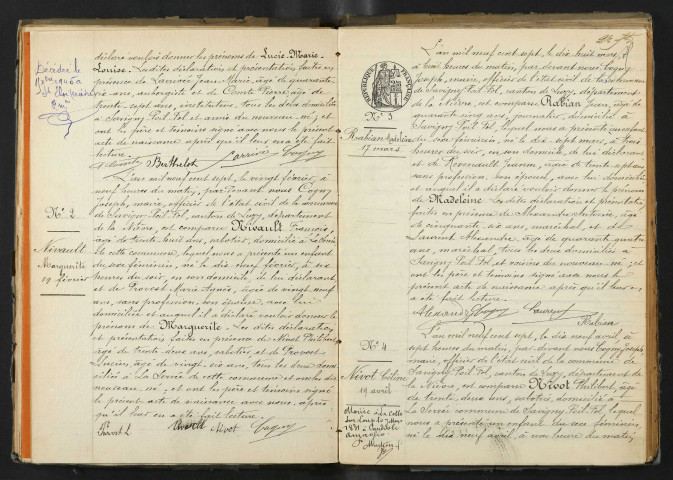 déclaré vouloir donner les prénoms de Lucie-Marie-
Louise. Lesdites déclaration et présentation faites en
présence de Larrivée Jean-Marie, âgé de quarante
ans, aubergiste et de Comte Pierre, âgé de
trente sept ans, instituteur, tous les deux domiciliés
à Savigny Poil Fol et amis du nouveau né; et
ont les père et témoins signé avec nous le présent
acte de naissance après qu'il leur en a été fait
lecture.
Berthelot Larrivée Cogny
Décédée le
N° 2
Nivault
Marguerite
19 février
L'an mil neuf cent sept, le vingt février, à
neuf heures du matin, par devant nous Cogny
Joseph, maire, officier de l'état civil de la commune
de Savigny Poil Fol, canton de Luzy, département
de la Nièvre, est comparu Nivault François,
âgé de trente huit ans, sabotier, domicilié à
cette commune, lequel nous a présenté un enfant
du sexe féminin, né le dix neuf février, à six
heures du soir, en son domicile, de lui déclarant
et de Provost Marie Année, âgée de vingt neuf
ans, sans profession, son épouse, avec lui
domiciliée et auquel il a déclaré vouloir donner le
prénom de Marguerite. Lesdites déclaration
et présentation faites en présence de Nivot Philibert,
âgé de trente deux ans, sabotier et de Provost
Lucien, âgé de vingt six ans, tous les deux domi-
ciliés à La Serrée de cette commune et oncles du
nouveau né; et ont les père et témoins signé
le présent acte de naissance avec nous, après
qu'il leur en a été fait lecture.
Provost L. Nivault Nivot Cogny
RÉPUBLIQUE FRANÇAISE
N° 3
Rabian Madeleine
17 mars
L'an mil neuf cent sept, le dix huit mars,
à heures du matin, par devant nous Cogny
Joseph, maire, officier de l'état civil de la commune
de Savigny Poil Fol, canton de Luzy, département
de la Nièvre, est comparu Rabian Jean, âgé de
quarante cinq ans, journalier, domicilié à
Savigny Poil Fol, lequel nous a présenté un enfant
du sexe féminin, né le dix sept mars, à trois
heures du soir, en son domicile, de lui déclarant
et de Jeanne, âgée de trente sept ans
sans profession, son épouse, avec lui domiciliée
et auquel il a déclaré vouloir donner le prénom
de Madeleine. Lesdites déclaration et présentation
faites en présence de Alexandre, âgé
de cinquante six ans, maréchal et de
Laurent Alexandre, âgé de quarante quatre
ans, maréchal, tous les deux domiciliés à
Savigny Poil Fol et voisins du nouveau né; et
ont les père et témoins signé avec nous le
présent acte de naissance après qu'il leur en
a été fait lecture.
Alexandre Cogny Laurent
Rabian
N° 4
Nivot
19 avril
Mariée à La Celle
sur Loire le 7 Mars
1931 à
L'an mil neuf cent sept, le dix neuf avril, à
sept heures du matin, par devant nous Cogny Joseph
maire, officier de l'état civil de la commune de
Savigny Poil Fol, canton de Luzy, département de
la Nièvre, est comparu Nivot Philibert, âgé
de trente deux ans, sabotier, domicilié à
La Serrée commune de Savigny Poil Fol, lequel
nous a présenté un enfant du sexe féminin,
né le dix neuf avril, à une heure du matin,